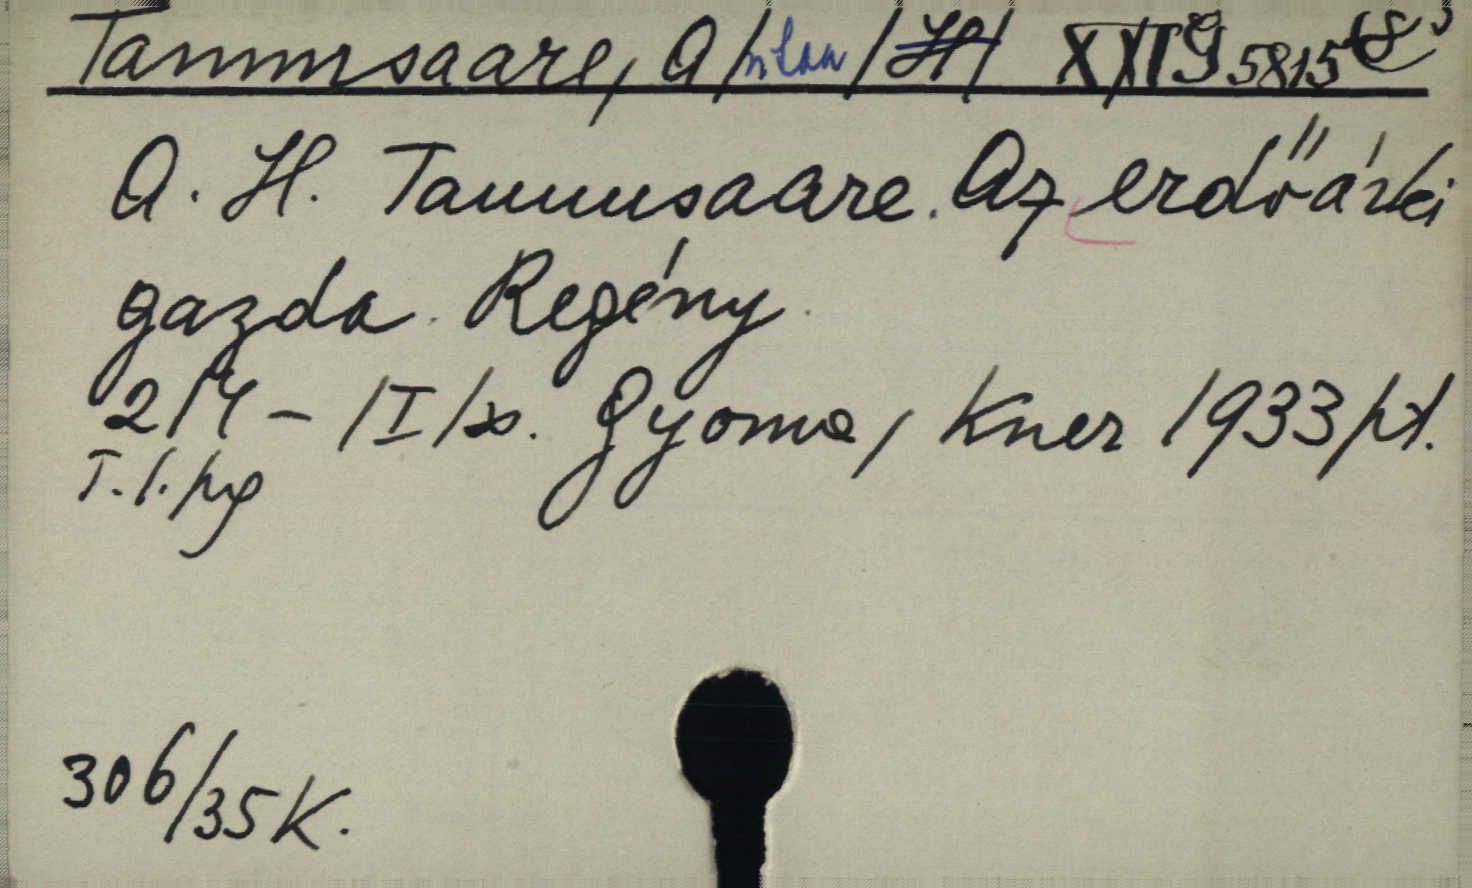 Tammsaare, A/nton/H/ XXIG 5815
A. H. Tammsaare. Az erdőárki
gazda. Regény.
2/4 - /I/ Gyoma, Kner 1933
T. l.
306/35 K.